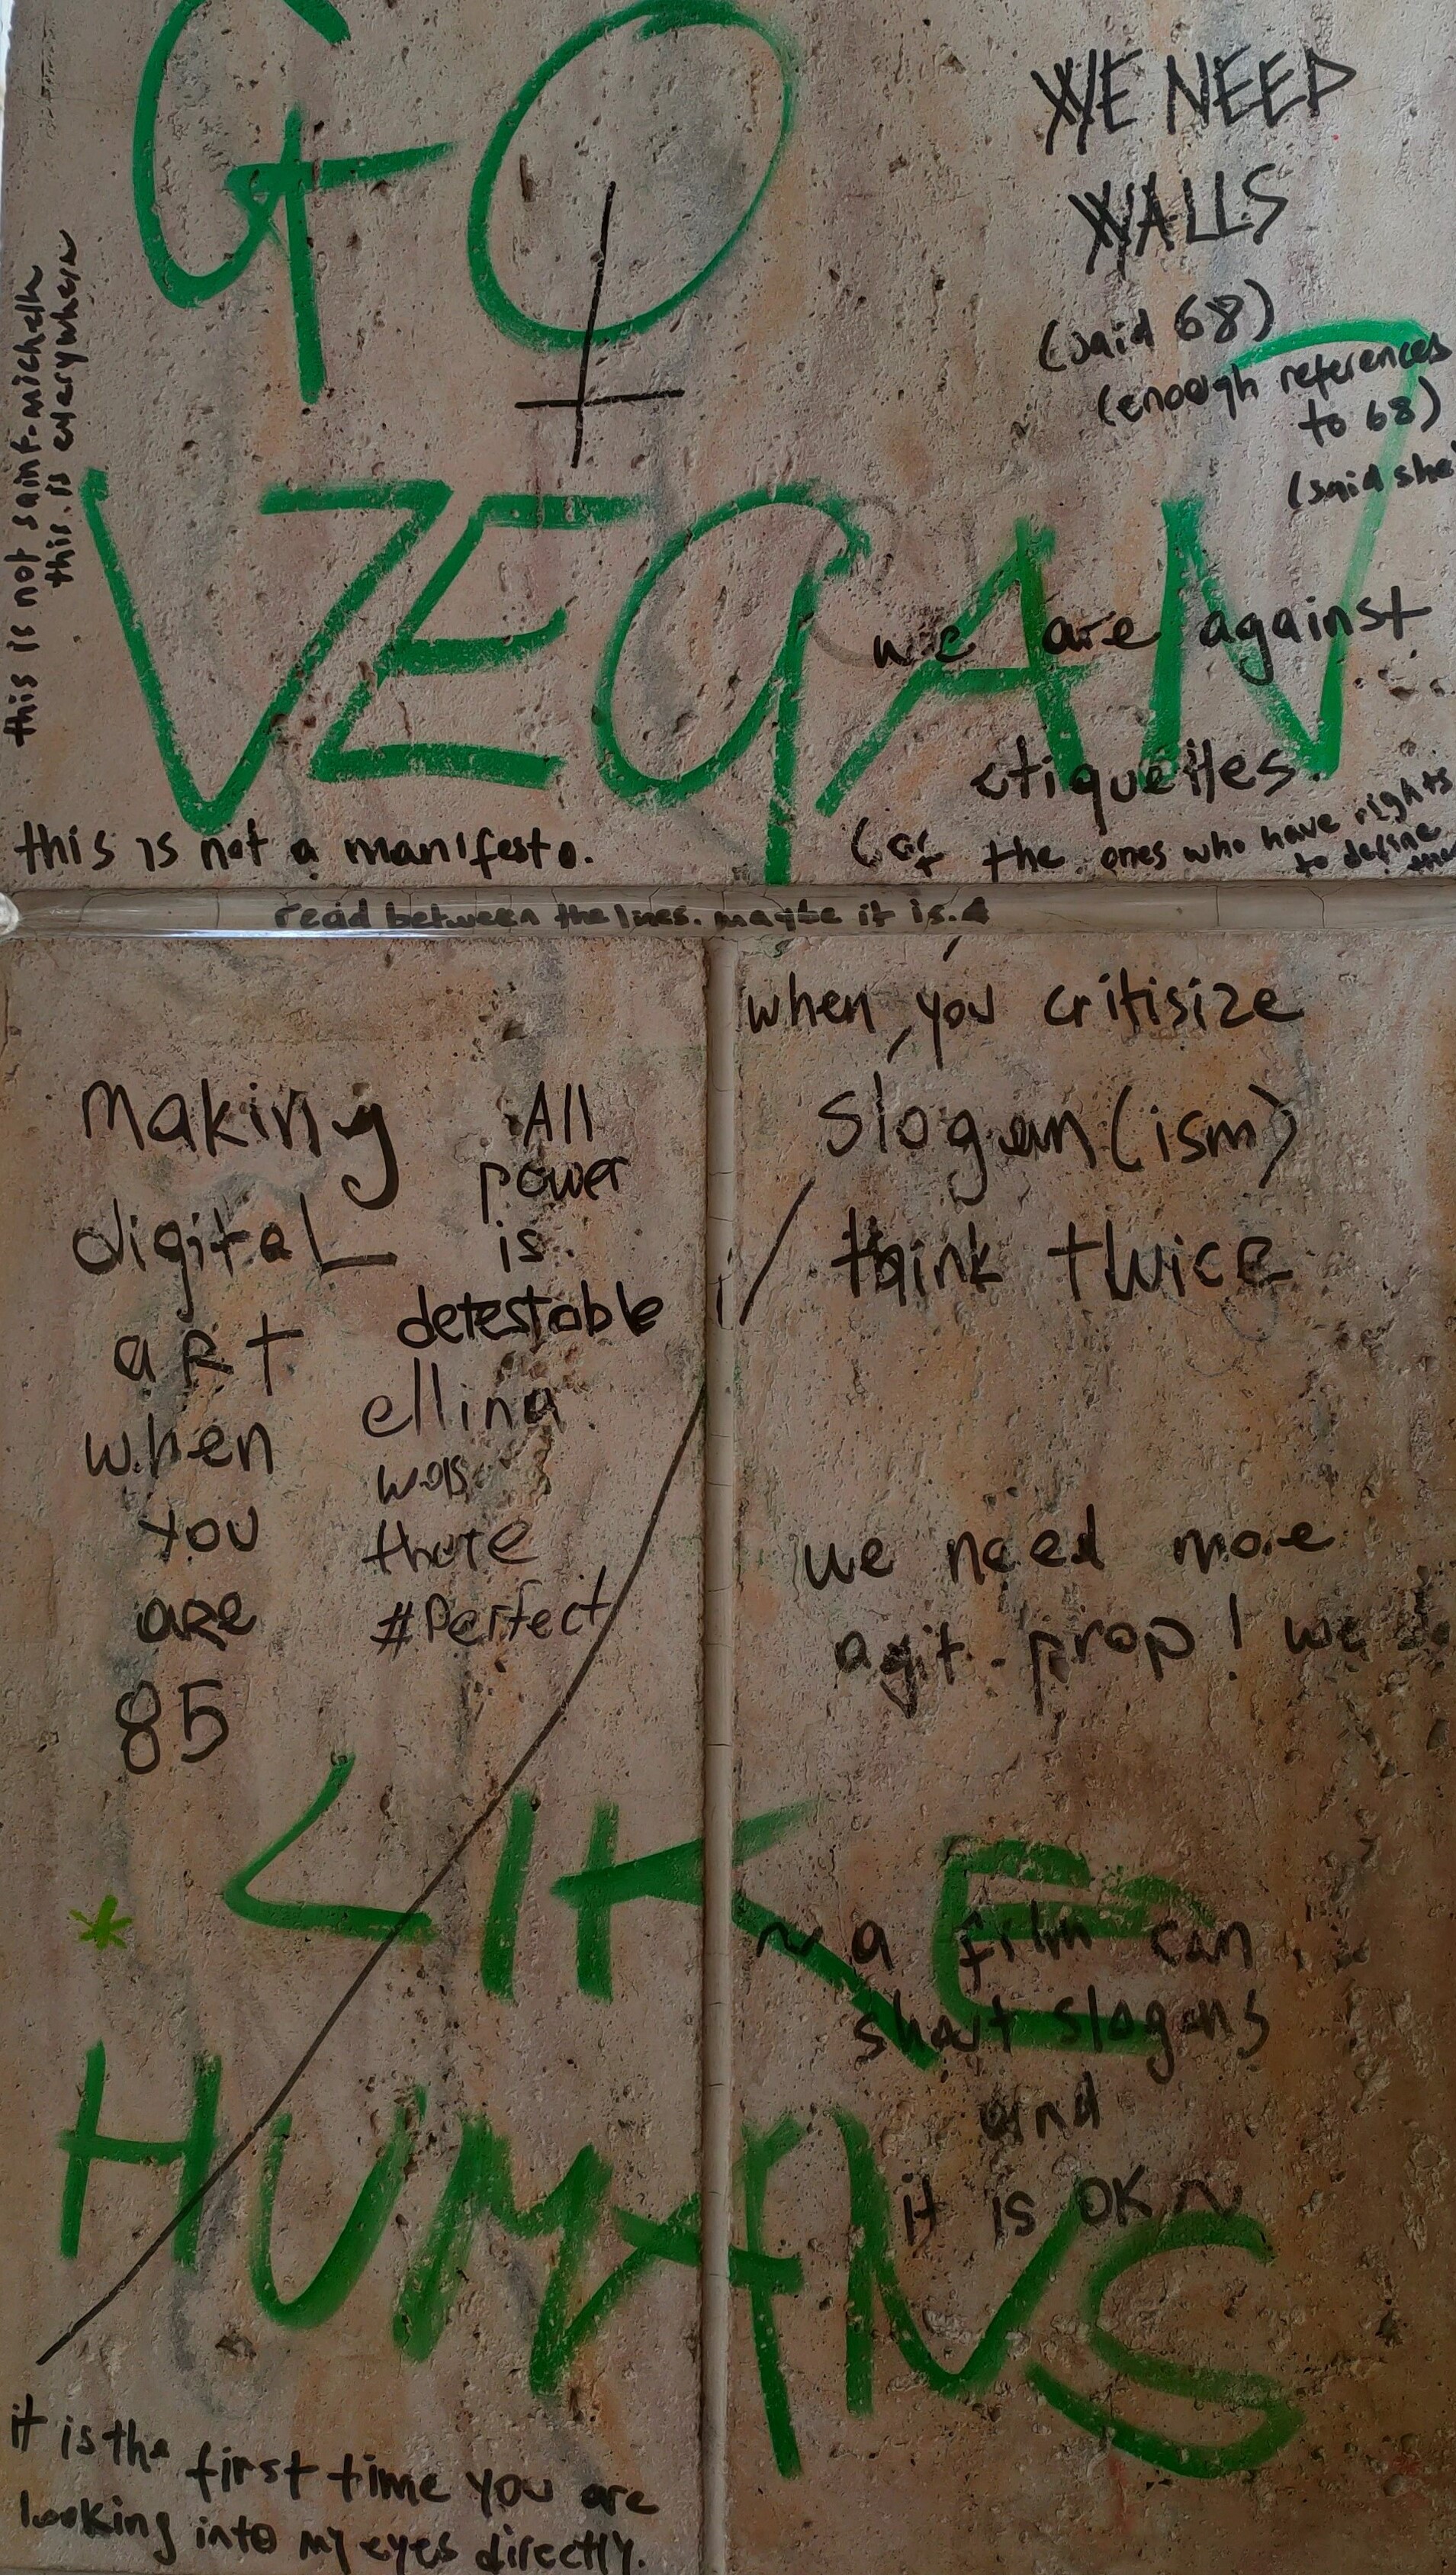 GO
VEGAN
WE NEED
WALLS
(said 68)
(enough references
to 68)
(said she
this is not saint-michelle
this is everywhere
we are against
etiquettes.
(of the ones who have rights
to define
this is not a manifesto.
read between the lines. maybe it is.
when you critisize
slogan(ism)
think twice
making
digital
aRT
when
you
aRe
85
All
power
is
detestable
ellina
was
there
#Perfect
we need more
agit.prop! we
LIKE
HUMANS
~ a film can
shout slogans
and
it is OK ~
it is the first time you are
looking into my eyes directly.